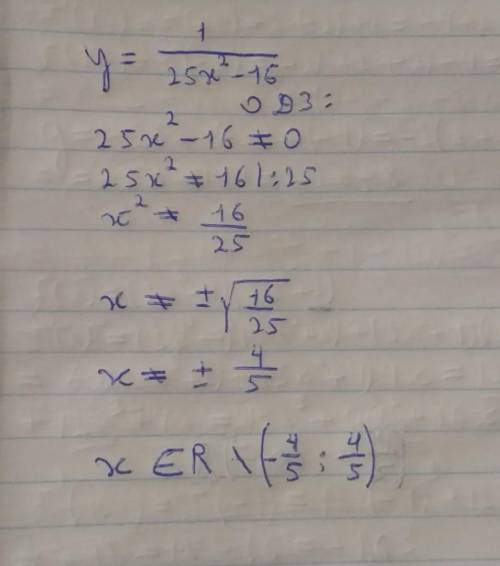 y = 1/(25x² - 16)
ОДЗ:
25x² - 16 ≠ 0
25x² ≠ 16 |:25
x² ≠ 16/25
x ≠ ±√(16/25)
x ≠ ± 4/5
x ∈ R \ (-4/5 ; 4/5)